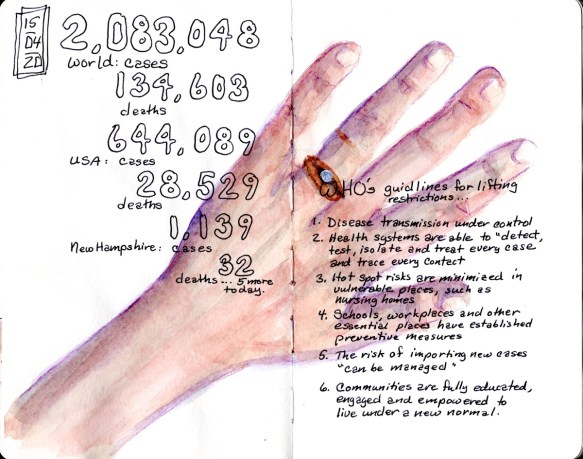 15
04
20
2,083,048
World: cases
134,603
deaths
644,089
USA: cases
28,529
deaths
1,139
New Hampshire: cases
32
deaths... 5 more
today.
WHO's guidlines for lifting
restrictions...
1. Disease transmission under control
2. Health systems are able to "detect,
test, isolate and treat every case
and trace every contact
3. Hot spot risks are minimized in
vulnerable places, such as
nursing homes
4. Schools, workplaces and other
essential places have established
preventive measures
5. The risk of importing new cases
"can be managed"
6. Communities are fully educated,
engaged and empowered to
live under a new normal.